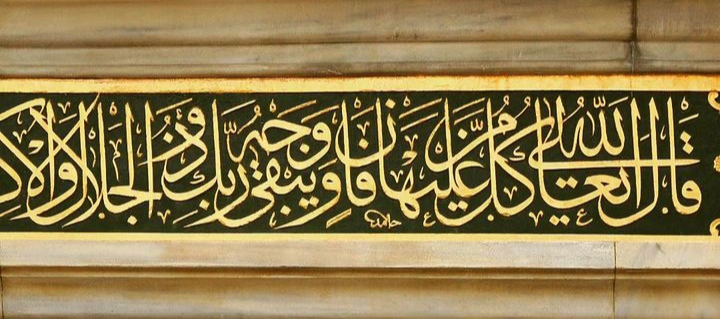 قال الله تعالى كل من عليها فان ويبقى وجه ربك ذو الجلال والاك
حامد